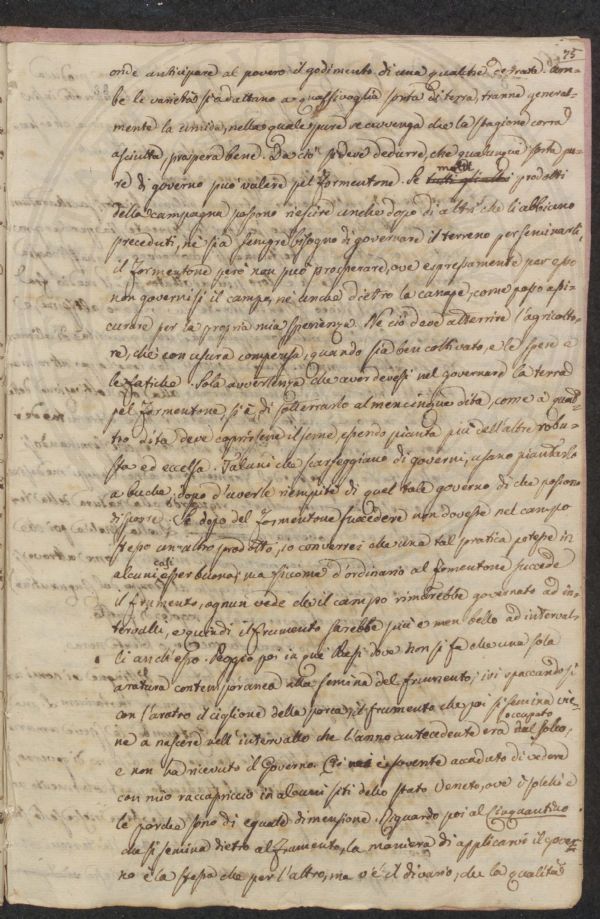 75
onde anticipare al povero il godimento di una qualche derrata. Am-
be le varietà si adattano a qualsivoglia sorta di terra, tranne general-
mente la umida, nella quale pure se avvenga che la stagione corra
asciutta, prospera bene. Da ciò si deve dedurre, che qualunque sorta pu-
re di governo può valere pel Formentone. Se tutti gli altri molti prodotti
della campagna possono riescire anche dopo di altri che li abbiano
preceduti, nè sia sempre bisogno di governare il terreno per seminarli,
il Formentone però non può prosperare, ove espressamente per esso
non governisi il campo, nè anche dietro la canape, come posso assi-
curare per la propria mia sperienza. Nè ciò deve atterrire l'agricolto-
re, che con usura compensa, quando sia ben coltivato, e le spese e
le fatiche. Sola avvertenza che aver devesi nel governare la terra
pel Formentone si è, di sotterrarlo almen cinque dita, come a quat-
tro dita deve coprirsene il seme, essendo pianta più dell'altre robu-
sta ed eccelsa. Taluni che scarseggiano di governi, usano piantarlo
a buche, dopo d'averle riempite di quel tale governo di che possono
disporre. Se dopo del Formentone succedere non dovesse nel campo
stesso un altro prodotto, io converrei che una tal pratica potesse in
alcuni casi esser buona; ma siccome d'ordinario al formentone succede
il frumento, ognun vede che il campo rimarebbe governato ad in-
tervalli, e quindi il frumento sarebbe più e men bello ad interval-
li anch'esso. Peggio poi in que' Paesi dove non si fa che una sola
aratura contemporanea alla semina del frumento; ivi spaccandosi
con l'aratro il ciglione della porca, il frumento che poi si semina vie-
ne a nascere nell'intervallo che l'anno antecedente era occupato dal solco,
e non ha ricevuto il Governo. Ciò mi è sovente accaduto di vedere
con mio raccapriccio in alcuni siti dello stato Veneto, ove i solchi e
le porche sono di eguale dimensione. Riguardo poi al Cinquantino
che si semina dietro al frumento, la maniera di applicarvi il gover-
no è la stessa che per l'altro, ma v'è il divario, che la qualità